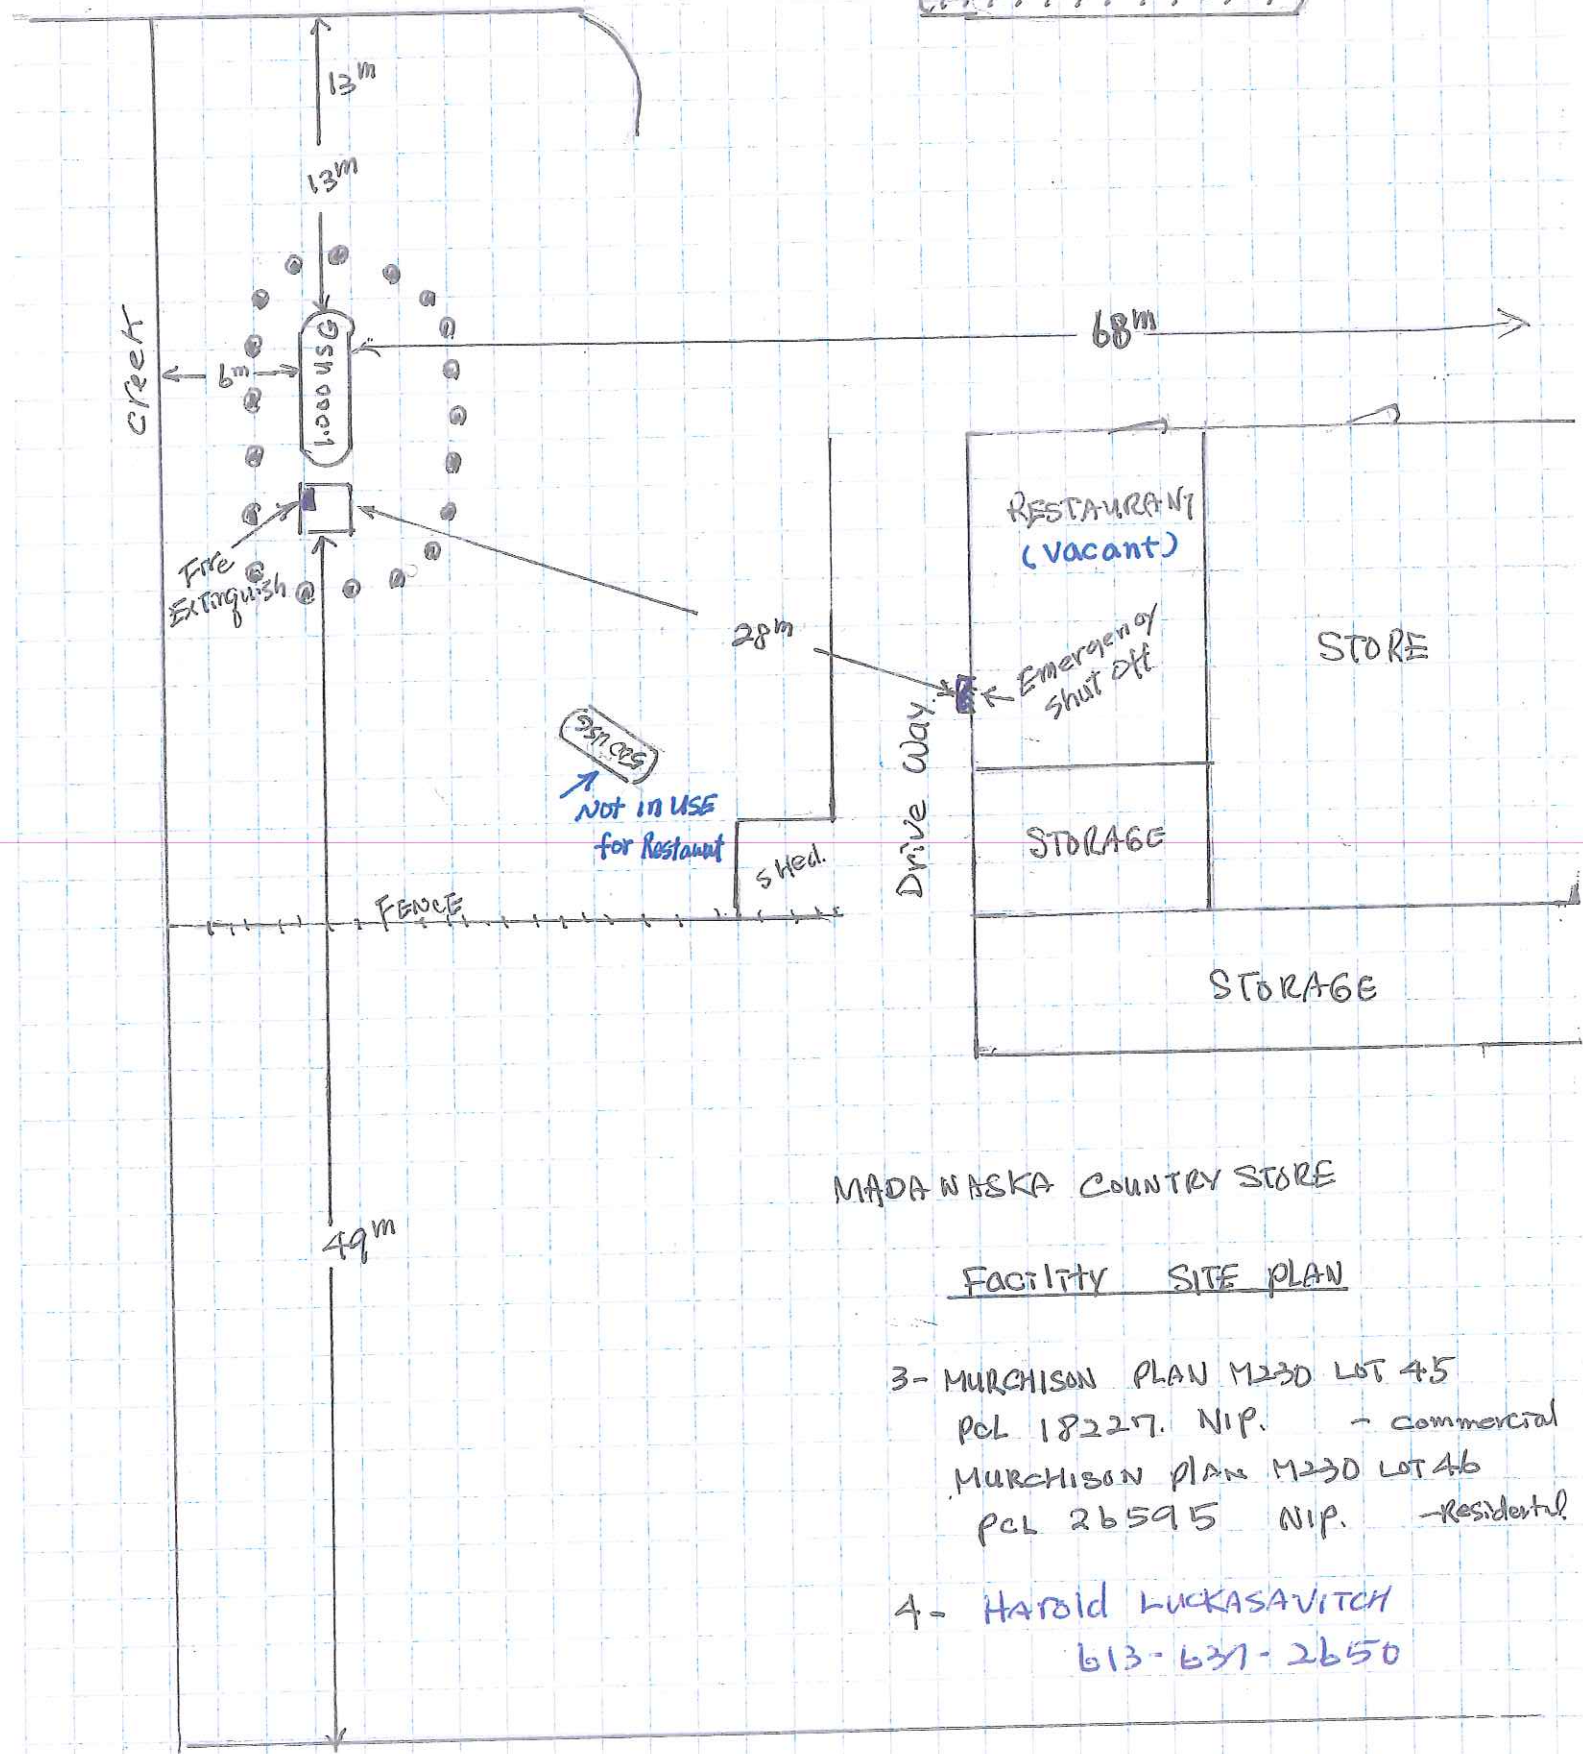 13m
13m
Creek
6m
1.000 USG
68m
Fire
Extinquish
RESTAURANT
(Vacant)
STORE
28m
Emergency
shut off
Drive Way
500 USG
Not in USE
for Restaunt
shed.
STORAGE
FENCE
STORAGE
49m
MADAWASKA COUNTRY STORE
Facility SITE PLAN
3- MURCHISON PLAN M230 LOT 45
PCL 18227. NIP. - commercial
MURCHISON PlAN M230 LOT 46
PCL 26595 NIP. -Residental
4- Harold LUCKASAVITCH
613-637-2650